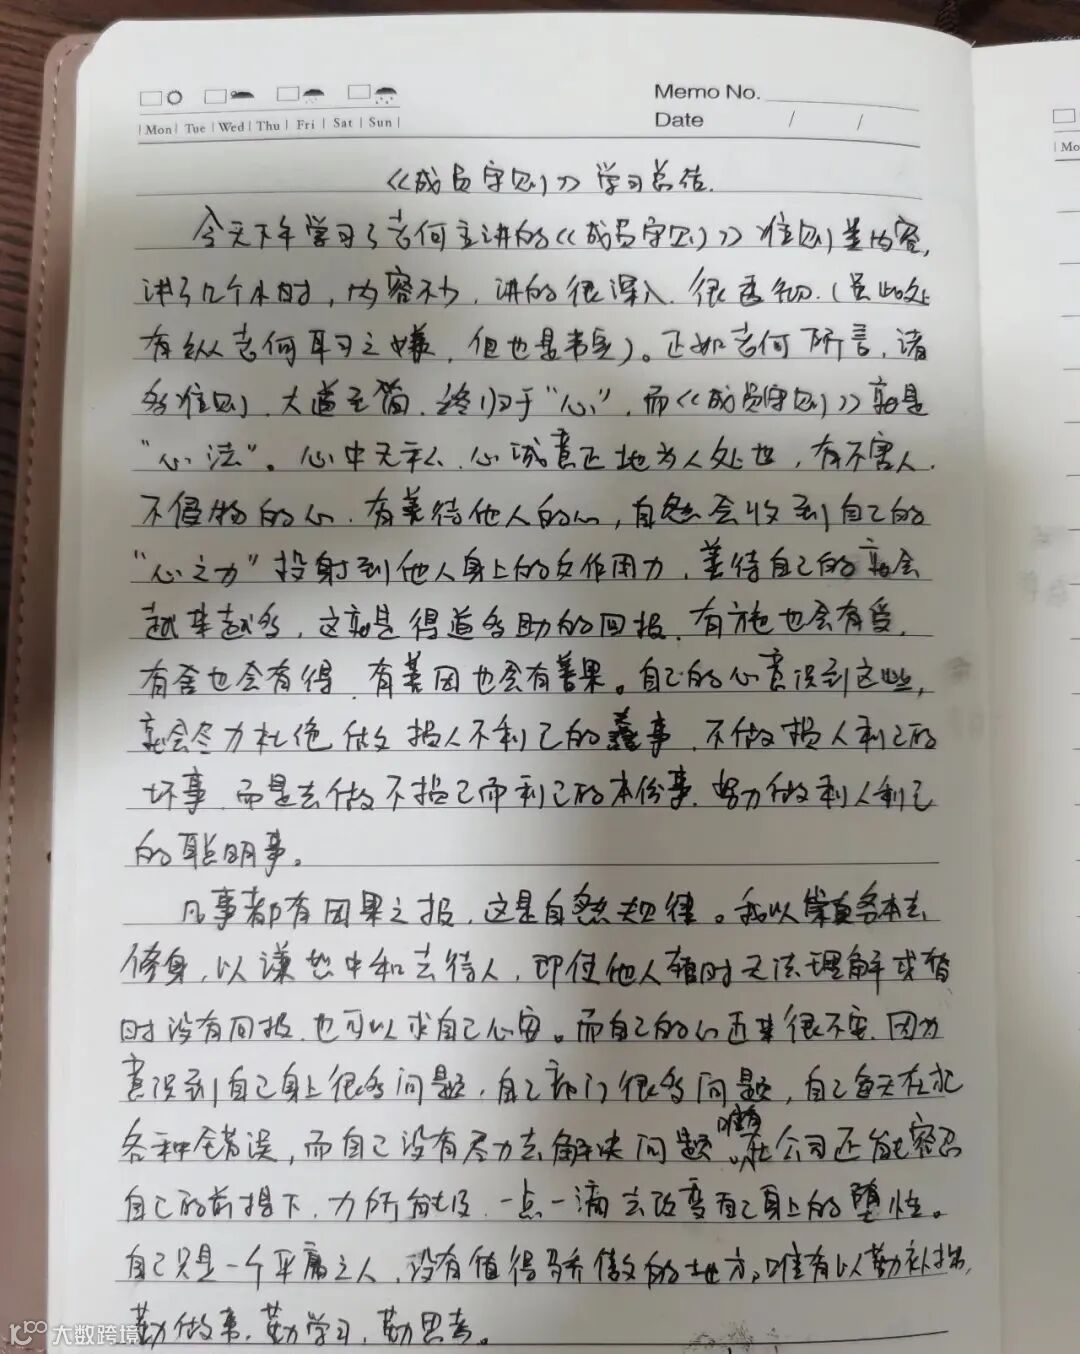 Memo No.
Date / /
Mon Tue Wed Thu Fri Sat Sun
Mo
《成员守则》学习总结.
今天下午学习了吉何主讲的《成员守则》准则类内容,
讲了几个小时,内容不少,讲的很深入.很透彻.(虽此处
有纵吉何耳习之嫌,但也是事实)。正如吉何所言,诸
多准则,大道至简.终归于"心",而《成员守则》就是
"心法"。心中无私、心诚意正地为人处世,有不害人.
不侵物的心.有善待他人的心,自然会收到自己的
"心之力"投射到他人身上的反作用力,善待自己的就会
越来越多,这就是得道多助的回报.有施也会有受.
有舍也会有得.有善因也会有善果。自己的心意识到这些,
就会尽力杜绝做损人不利己的蠢事,不做损人利己的
坏事.而是去做不损己而利己的本份事.努力做利人利己
的聪明事。
凡事都有因果之报,这是自然规律。我以崇真务本去
修身,以谦恕中和去待人,即使他人暂时无法理解或暂
时没有回报.也可以求自己心安。而自己的心近来很不安.因为
意识到自己身上很多问题,自己部门很多问题,自己每天在犯
各种错误,而自己没有尽力去解决问题。唯有在公司还能容忍
自己的前提下,力所能及,一点一滴去改变自己身上的堕性。
自己只是一个平庸之人,没有值得骄傲的地方,唯有以勤补拙,
勤做事,勤学习,勤思考。
大数跨境